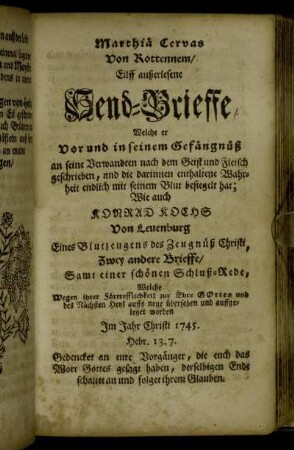 Matthiä Cervas
Von Rottennem/
Eilff außerlesene
Send-Brieffe,
Welche er
Vor und in seinem Gefängnüß
an seine Verwandten nach dem Geist und Fleisch
geschrieben, und die darinnen enthaltene Wahr-
heit endlich mit seinem Blut besiegelt hat;
Wie auch
KONRAD KOCHS
Von Leuenburg
Eines Blutzeugens des Zeugnüß Christi,
Zwey andere Brieffe/
Samt einer schönen Schluß-Rede,
Welche
Wegen ihrer Fürtrefflichkeit zur Ehre GOttes und
des Nächsten Heyl auffs neue übersehen und auffge-
setzet worden
Im Jahr Christi 1745.
Hebr. 13. 7.
Gedencket an eure Vorgänger, die euch das
Wort Gottes gesagt haben, derselbigen Ende
schauet an und folget ihrem Glauben.